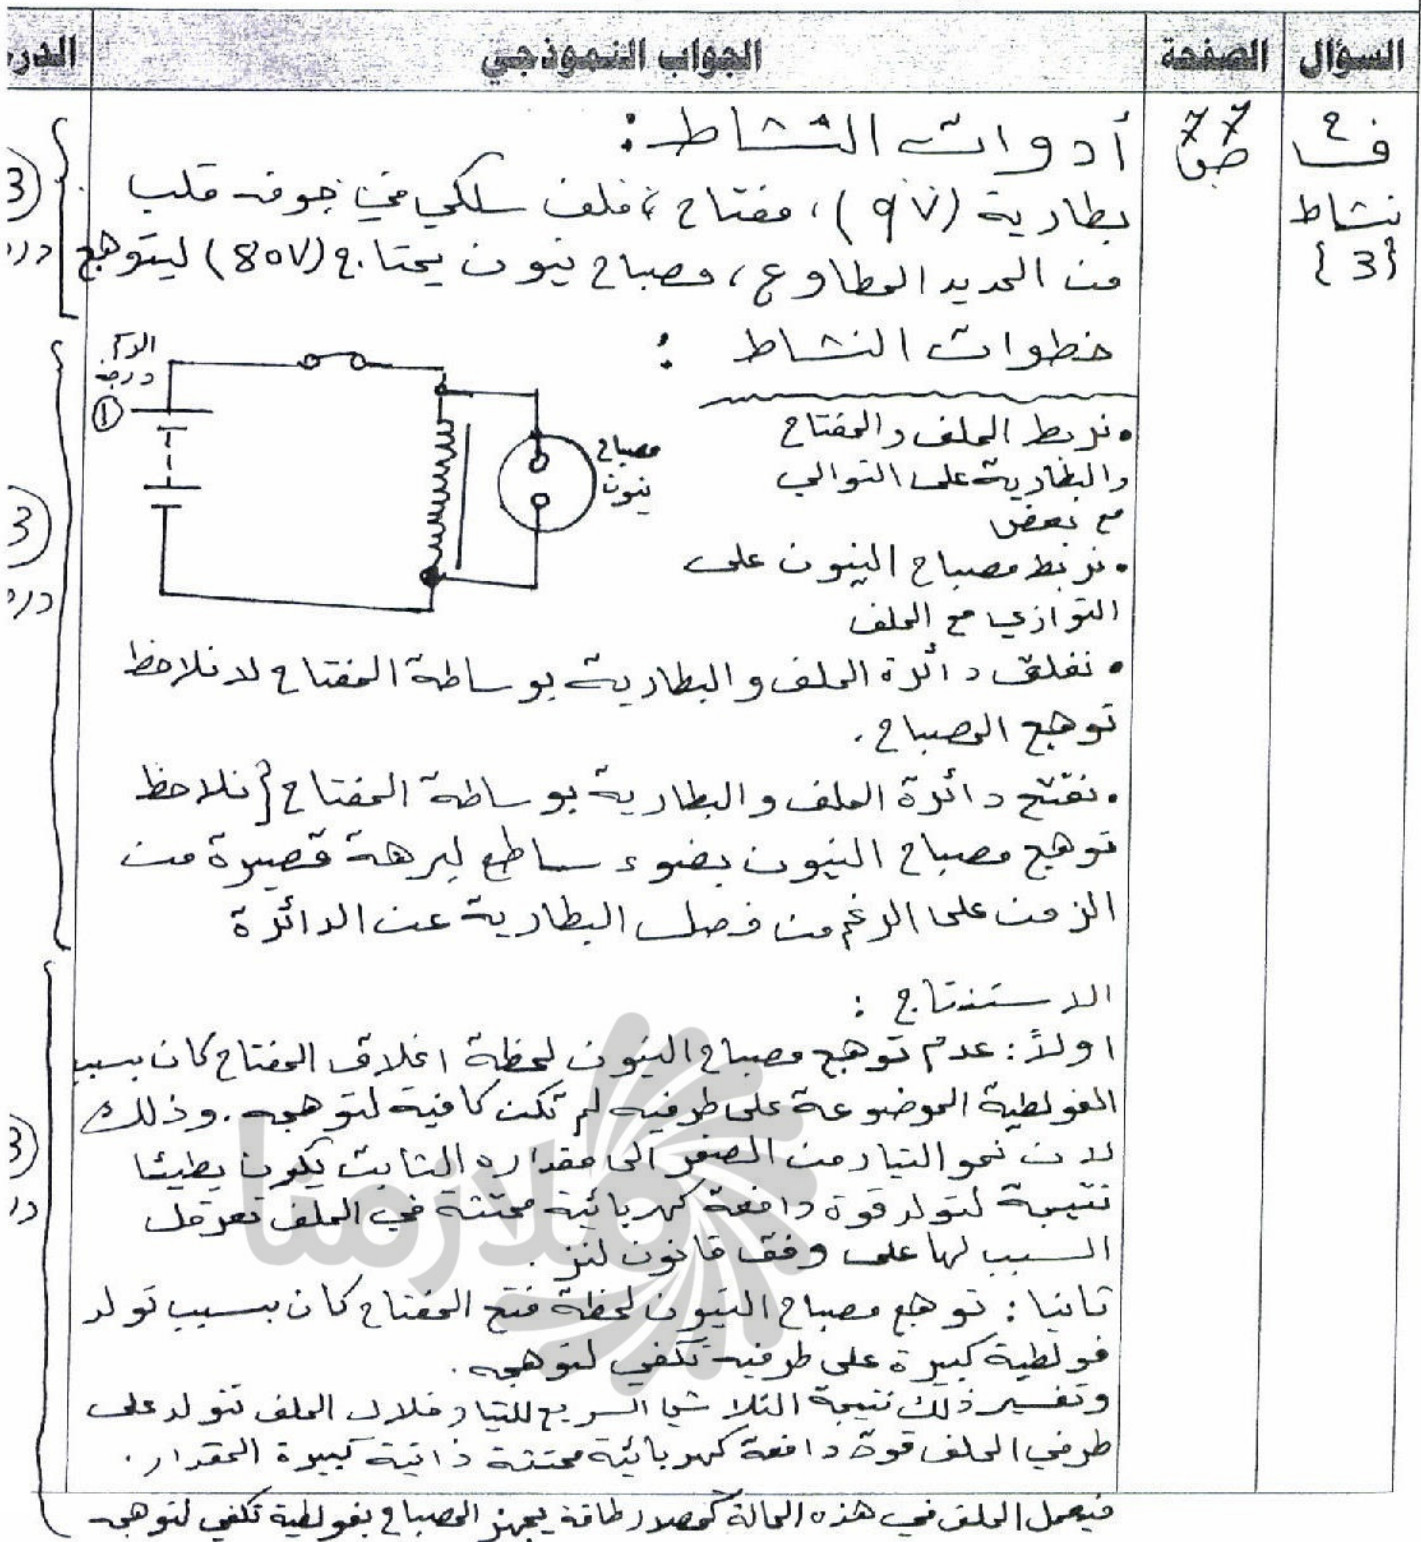 السؤال الصفحة الجواب النموذجي الدر
ف٢ نشاط {3}
ص ٧٧
أدوات النشاط :
بطارية (9V) ، مفتاح ، ملف سلكي في جوفه قلب
من الحديد المطاوع ، مصباح نيون يحتاج (80V) ليتوهج
3
خطوات النشاط :
• نربط الملف والمفتاح
والبطارية على التوالي
مع بعض
• نربط مصباح النيون على
التوازي مع الملف
الرسم
درجة
1
مصباح
نيون
3
• نغلق دائرة الملف والبطارية بوساطة المفتاح لا نلاحظ
توهج المصباح .
• نفتح دائرة الملف والبطارية بوساطة المفتاح نلاحظ
توهج مصباح النيون بضوء ساطع لبرهة قصيرة من
الزمن على الرغم من فصل البطارية عن الدائرة
الاستنتاج :
اولاً : عدم توهج مصباح النيون لحظة اغلاق المفتاح كان بسبب
الفولطية الموضوعة على طرفيه لم تكن كافية لتوهجه . وذلك
لان نمو التيار من الصفر الى مقداره الثابت يكون بطيئا
نتيجة لتولد قوة دافعة كهربائية محتثة في الملف تعرقل
السبب لها على وفق قانون لنز .
ثانيا : توهج مصباح النيون لحظة فتح المفتاح كان بسبب تولد
فولطية كبيرة على طرفيه تكفي لتوهجه .
وتفسير ذلك نتيجة التلاشي السريع للتيار خلال الملف تتولد على
طرفي الملف قوة دافعة كهربائية محتثة ذاتية كبيرة المقدار .
فيعمل الملف في هذه الحالة كمصدر طاقة يجهز المصباح بفولطية تكفي لتوهجه
3
ملازمنا